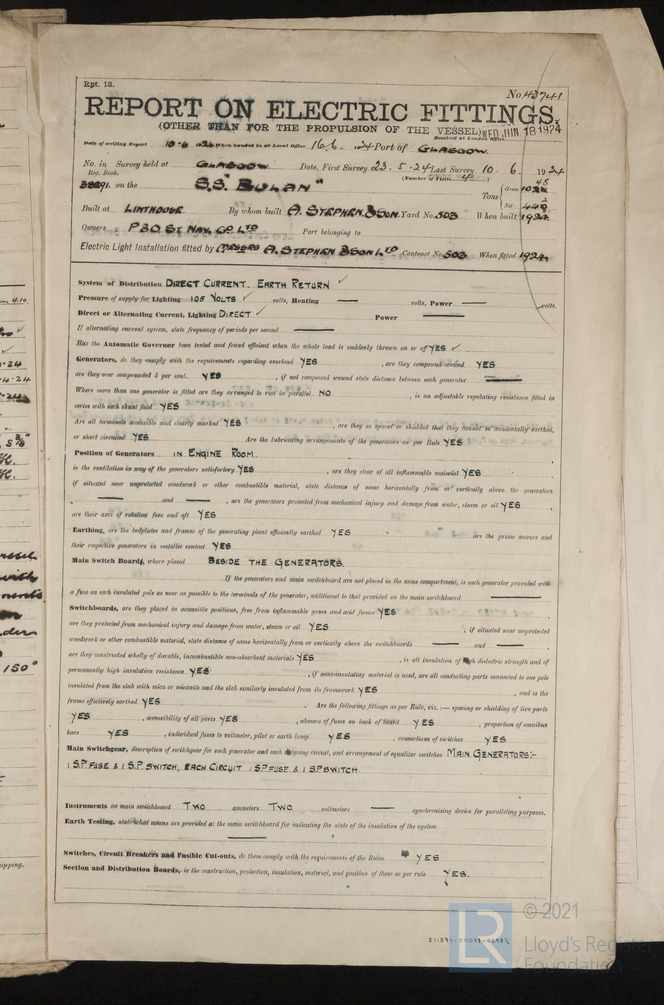 Rpt. 13.
No. 43741
REPORT ON ELECTRIC FITTINGS.
(OTHER THAN FOR THE PROPULSION OF THE VESSEL)
WED. JUN. 18 1924
Date of writing Report 10-6 1924 When handed in at Local Office 16.6. 1924 Port of GLASGOW.
Received at London Office
No. in Survey held at GLASGOW. Date, First Survey 23.5.24 Last Survey 10.6. 1924
Reg. Book. (Number of Visits 4)
on the S.S. "BULAN" Tons { Gross Net
Built at LINTHOUSE By whom built A. STEPHEN & SON. Yard No. 503 When built 1924
Owners P & O ST. NAV. CO LTD Port belonging to
Electric Light Installation fitted by MESSRS A. STEPHEN & SON LTD Contract No. 503 When fitted 1924
System of Distribution DIRECT CURRENT. EARTH RETURN ✓
Pressure of supply for Lighting 105 VOLTS ✓ volts, Heating — volts, Power — volts.
Direct or Alternating Current, Lighting DIRECT ✓ Power —
If alternating current system, state frequency of periods per second —
Has the Automatic Governor been tested and found efficient when the whole load is suddenly thrown on or off YES ✓
Generators, do they comply with the requirements regarding overload YES , are they compound wound YES
are they over compounded 5 per cent. YES , if not compound wound state distance between each generator —
Where more than one generator is fitted are they arranged to run in parallel NO , is an adjustable regulating resistance fitted in
series with each shunt field YES
Are all terminals accessible and clearly marked YES , are they so spaced or shielded that they cannot be accidentally earthed,
or short circuited YES Are the lubricating arrangements of the generators as per Rule YES
Position of Generators IN ENGINE ROOM.
is the ventilation in way of the generators satisfactory YES , are they clear of all inflammable material YES
if situated near unprotected woodwork or other combustible material, state distance of same horizontally from or vertically above the generators
— and — , are the generators protected from mechanical injury and damage from water, steam or oil YES ,
are their axis of rotation fore and aft YES
Earthing, are the bedplates and frames of the generating plant efficiently earthed YES are the prime movers and
their respective generators in metallic contact YES
Main Switch Boards, where placed BESIDE THE GENERATORS.
If the generators and main switchboard are not placed in the same compartment, is each generator provided with
a fuse on each insulated pole as near as possible to the terminals of the generator, additional to that provided on the main switchboard —
Switchboards, are they placed in accessible positions, free from inflammable gases and acid fumes YES
are they protected from mechanical injury and damage from water, steam or oil YES , if situated near unprotected
woodwork or other combustible material, state distance of same horizontally from or vertically above the switchboards — and — ,
are they constructed wholly of durable, incombustible non-absorbent materials YES , is all insulation of high dielectric strength and of
permanently high insulation resistance YES , if semi-insulating material is used, are all conducting parts connected to one pole
insulated from the slab with mica or micanite and the slab similarly insulated from its framework YES , and is the
frame effectively earthed YES Are the following fittings as per Rule, viz.:— spacing or shielding of live parts
YES , accessibility of all parts YES , absence of fuses on back of board YES , proportion of omnibus
bars YES , individual fuses to voltmeter, pilot or earth lamp YES , connections of switches YES
Main Switchgear, description of switchgear for each generator and each outgoing circuit, and arrangement of equalizer switches MAIN GENERATORS:-
1 S.P FUSE & 1 S.P SWITCH, EACH CIRCUIT 1 S.P FUSE & 1 S.P SWITCH.
Instruments on main switchboard TWO ammeters TWO voltmeters — synchronising device for paralleling purposes.
Earth Testing, state what means are provided at the main switchboard for indicating the state of the insulation of the system
—
Switches, Circuit Breakers and Fusible Cut-outs, do these comply with the requirements of the Rules YES
Section and Distribution Boards, is the construction, protection, insulation, material, and position of these as per rule YES.
© 2021
LR
Lloyd's Register
Foundation